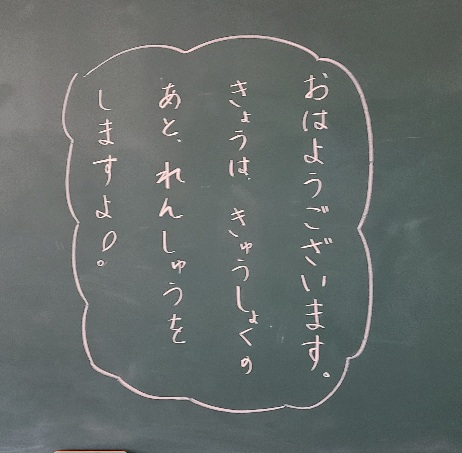 おはようございます。
きょうは きゅうしょくの
あと、れんしゅうを
しますよ!